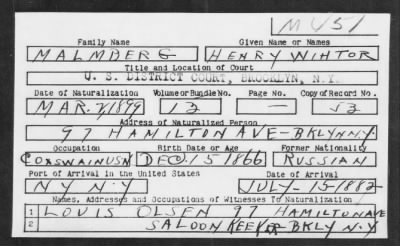 M 451
Family Name Given Name or Names
MALMBERG HENRY WIHTOR
Title and Location of Court
U. S. DISTRICT COURT, BROOKLYN, N.Y.
Date of Naturalization Volume or Bundle No. Page No. Copy of Record No.
MAR. 7, 1899 12 — 53
Address of Naturalized Person
97 HAMILTON AVE-BKLYN N.Y.
Occupation Birth Date or Age Former Nationality
COXSWAIN USN DEC. 15 1866 RUSSIAN
Port of Arrival in the United States Date of Arrival
N Y N.Y JULY-15-1882
Names, Addresses and Occupations of Witnesses To Naturalization
1 LOUIS OLSEN 97 HAMILTON AVE
2 SALOON KEEPER-BKLY N.Y